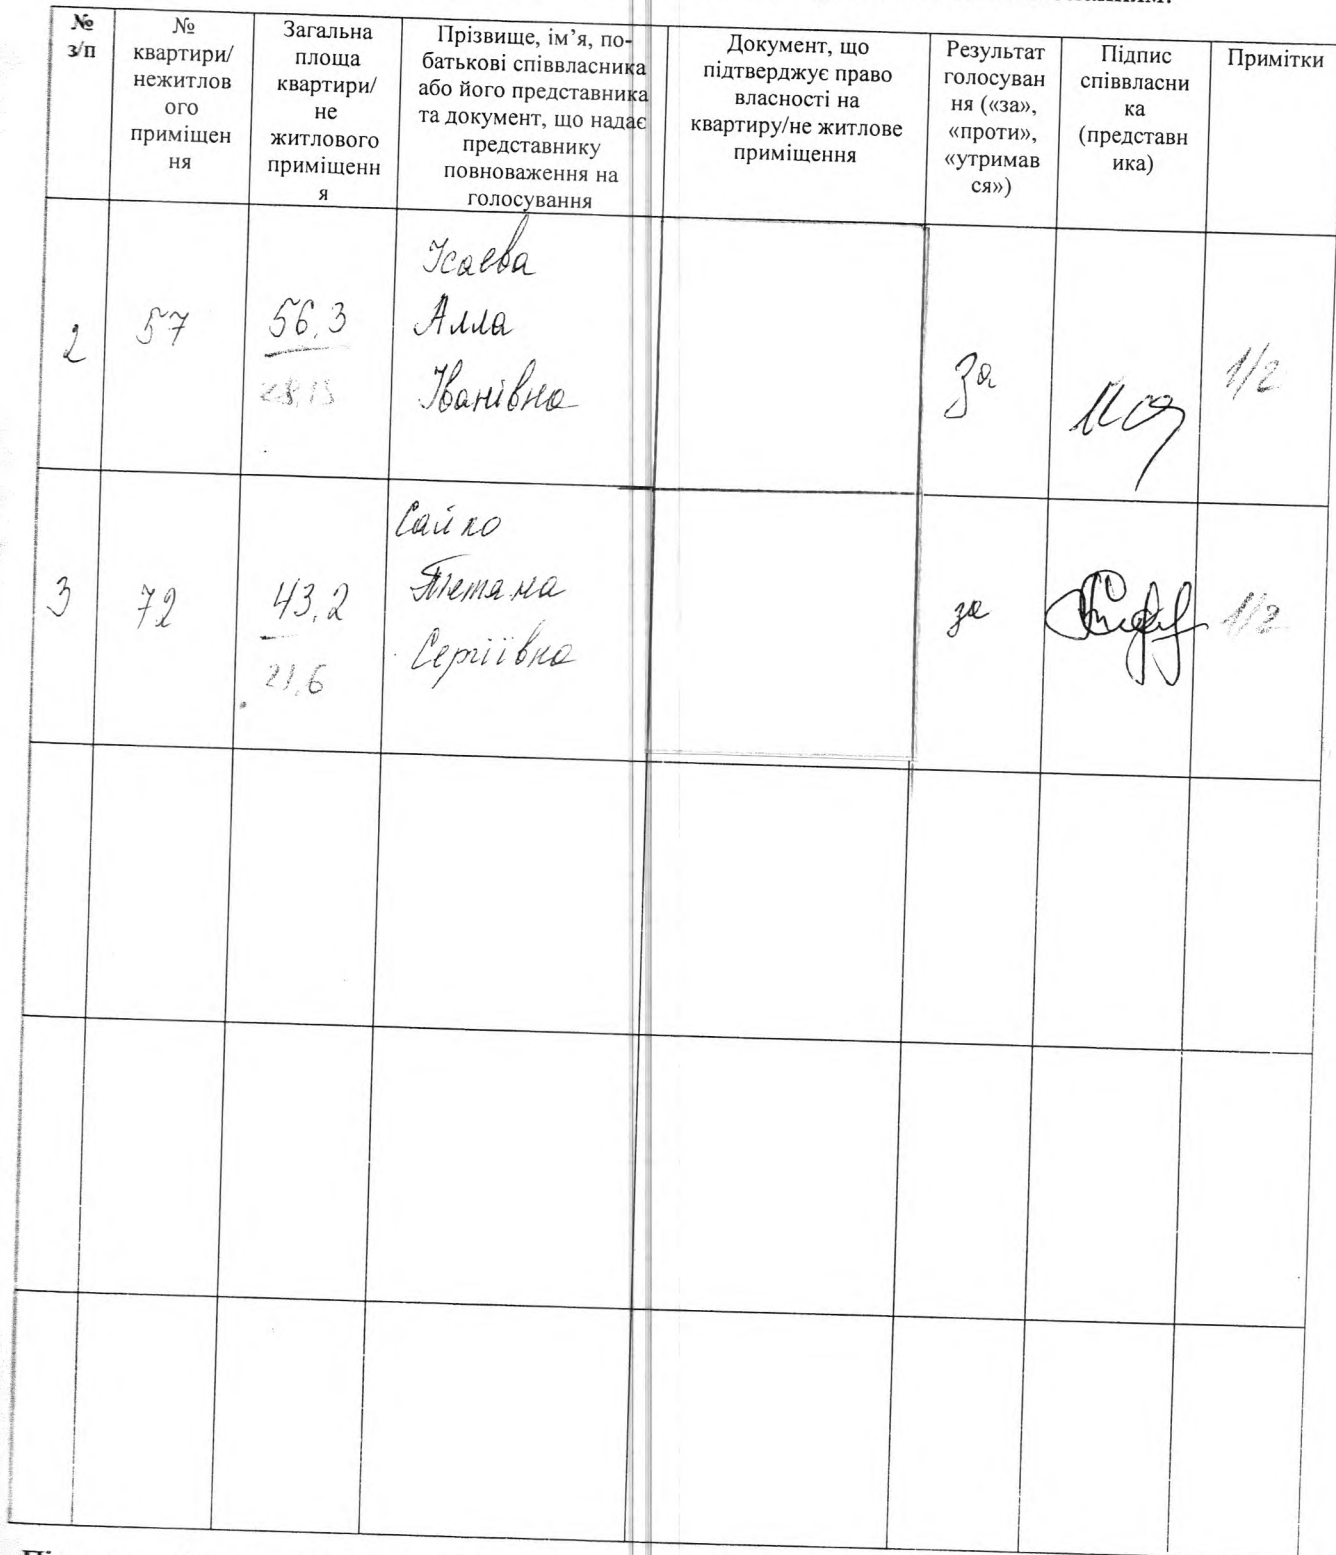 №
з/п
№
квартири/
нежитлов
ого
приміщен
ня
Загальна
площа
квартири/
не
житлового
приміщенн
я
Прізвище, ім’я, по-
батькові співвласника
або його представника
та документ, що надає
представнику
повноваження на
голосування
Документ, що
підтверджує право
власності на
квартиру/не житлове
приміщення
Результат
голосуван
ня («за»,
«проти»,
«утримав
ся»)
Підпис
співвласни
ка
(представн
ика)
Примітки
2
57
56,3
28,15
Ісаєва
Алла
Іванівна
За
1/2
3
72
43,2
21,6
Сайко
Тетяна
Сергіївна
за
1/2